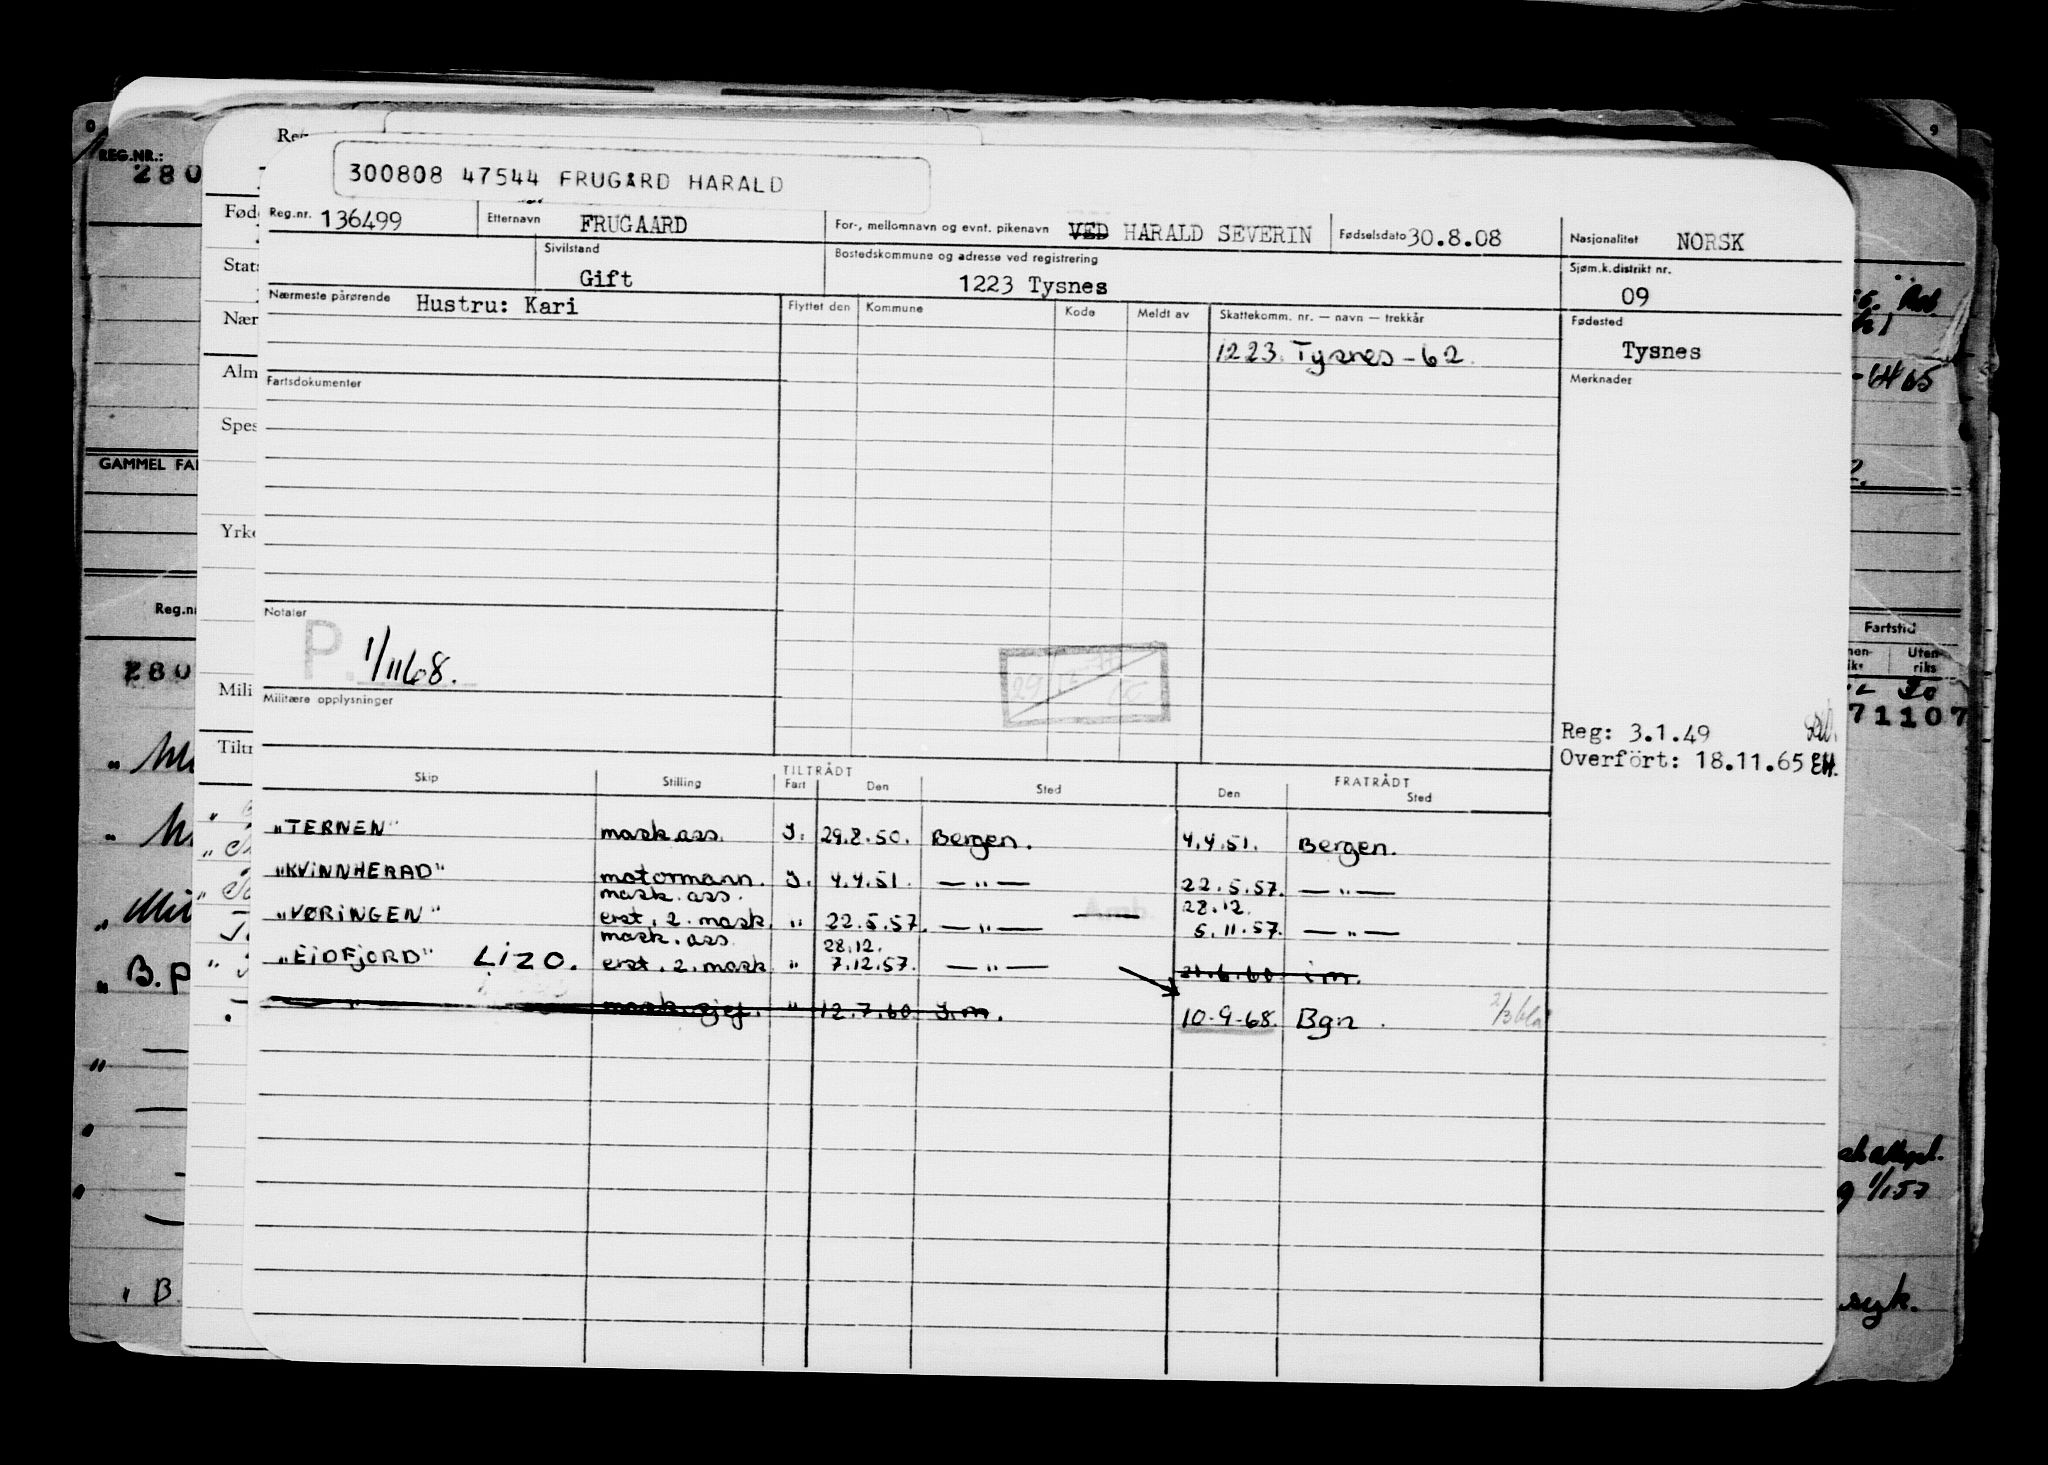 300808 47544 FRUGÅRD HARALD
Reg.nr. 136499 Etternavn FRUGAARD For-, mellomnavn og evnt. pikenavn VED HARALD SEVERIN Fødselsdato 30.8.08 Nasjonalitet NORSK
Sivilstand Gift Bostedskommune og adresse ved registrering 1223 Tysnes Sjøm.k.distrikt nr. 09
Nærmeste pårørende Hustru: Kari Flyttet den Kommune Kode Meldt av Skattekomm. nr. — navn — trekkår Fødested
1223. Tysnes - 62. Tysnes
Fartsdokumenter Merknader
Notater
P. 1/11 68.
Militære opplysninger
Reg: 3.1.49
Overfört: 18.11.65 EH.
TILTRÅDT FRATRÅDT
Skip Stilling Fart Den Sted Den Sted
"TERNEN" mask.ass. I. 29.8.50. Bergen. 4.4.51. Bergen.
"KVINNHERAD" motormann. I. 4.4.51. — " — 22.5.57. — " —
mask. ass. 28.12.
"VØRINGEN" erst. 2. mask. " 22.5.57. — " — 5.11.57. — " —
mask. ass. 28.12.
"EIDFJORD" LIZO. erst. 2. mask. " 7.12.57. — " — 21.6.60. i m.
" mask.gjef. " 12.7.60. I.m. 10-9-68. Bgn.
REG.NR.:
280
Reg
Fød
Stat
Nær
Alm
Spes
GAMMEL FA
Yrke
Reg.n
280
Mili
Tiltr
B.P
" B
Fartstid
Uten-
riks
71107
syk.